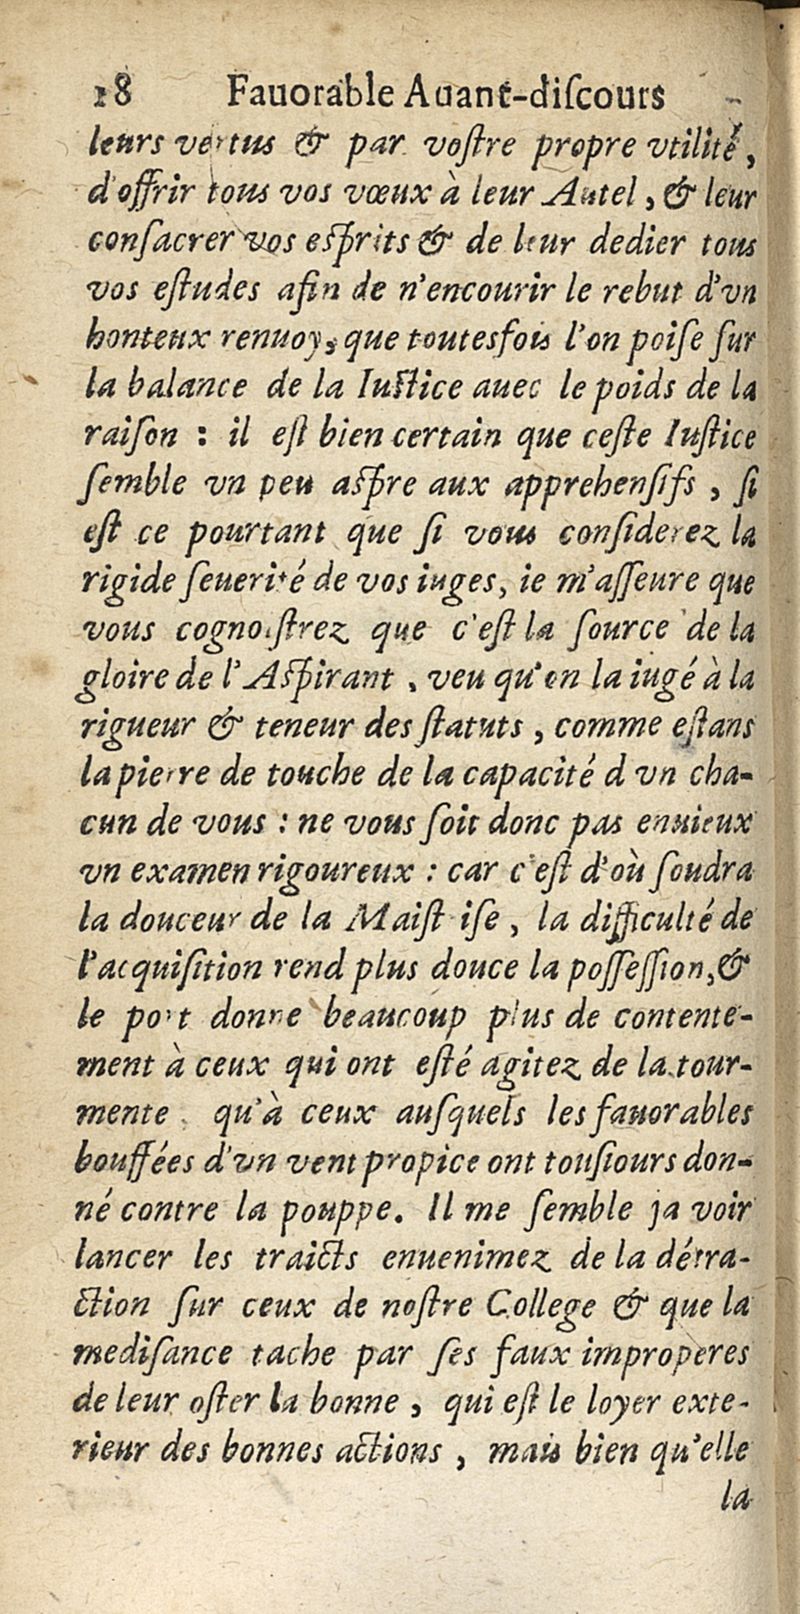 18 Fauorable Auant-diſcours
leurs vertus & par voſtre propre vtilité,
d'offrir tous vos vœux à leur Autel, & leur
conſacrer vos eſprits & de leur dedier tous
vos eſtudes afin de n'encourir le rebut d'vn
honteux renuoy, que toutesfois l'on poiſe ſur
la balance de la Iuſtice auec le poids de la
raiſon : il eſt bien certain que ceſte Iuſtice
ſemble vn peu aſpre aux apprehenſifs, ſi
eſt ce pourtant que ſi vous conſiderez la
rigide ſeuerité de vos iuges, ie m'aſſeure que
vous cognoiſtrez que c'eſt la ſource de la
gloire de l'Aſpirant, veu qu'on la iugé à la
rigueur & teneur des ſtatuts, comme eſtans
la pierre de touche de la capacité d vn cha-
cun de vous : ne vous ſoit donc pas enuieux
vn examen rigoureux : car c'eſt d'où ſoudra
la douceur de la Maiſt iſe, la difficulté de
l'acquiſition rend plus douce la poſſeſſion, &
le port donne beaucoup plus de contente-
ment à ceux qui ont eſté agitez de la tour-
mente qu'à ceux auſquels les fauorables
bouffées d'vn vent propice ont touſiours don-
né contre la pouppe. Il me ſemble ja voir
lancer les traicts enuenimez de la détra-
ction ſur ceux de noſtre College & que la
mediſance tache par ſes faux improperes
de leur oſter la bonne, qui eſt le loyer exte-
rieur des bonnes actions, mais bien qu'elle
la